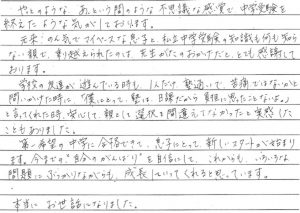 やっとのような、あという間のような不思議な感覚で中学受験を
終えたような気がしております。
元来、のん気でマイペースな息子と、私立中学受験の知識も何も知ら
ない親で、乗り越えられたのは、先生がたのおかげだと、とても感謝して
おります。
学校の友達が遊んでいる時も、1人だけ塾通いで、苦痛ではないかと
問いかけた時に、「僕にとって、塾は、日課だから負担に思ったことないよ。」
と言ってくれた時、安心して、親として選択を間違えてなかったと実感した
こともありました。
第一希望の中学に合格できて、息子にとって、新しいスタートが始まり
ます。今までの"自分のがんばり"を自信にして、これからも、いろいろな
問題にぶつかりながらも、成長していってくれると思っています。
本当にお世話になりました。